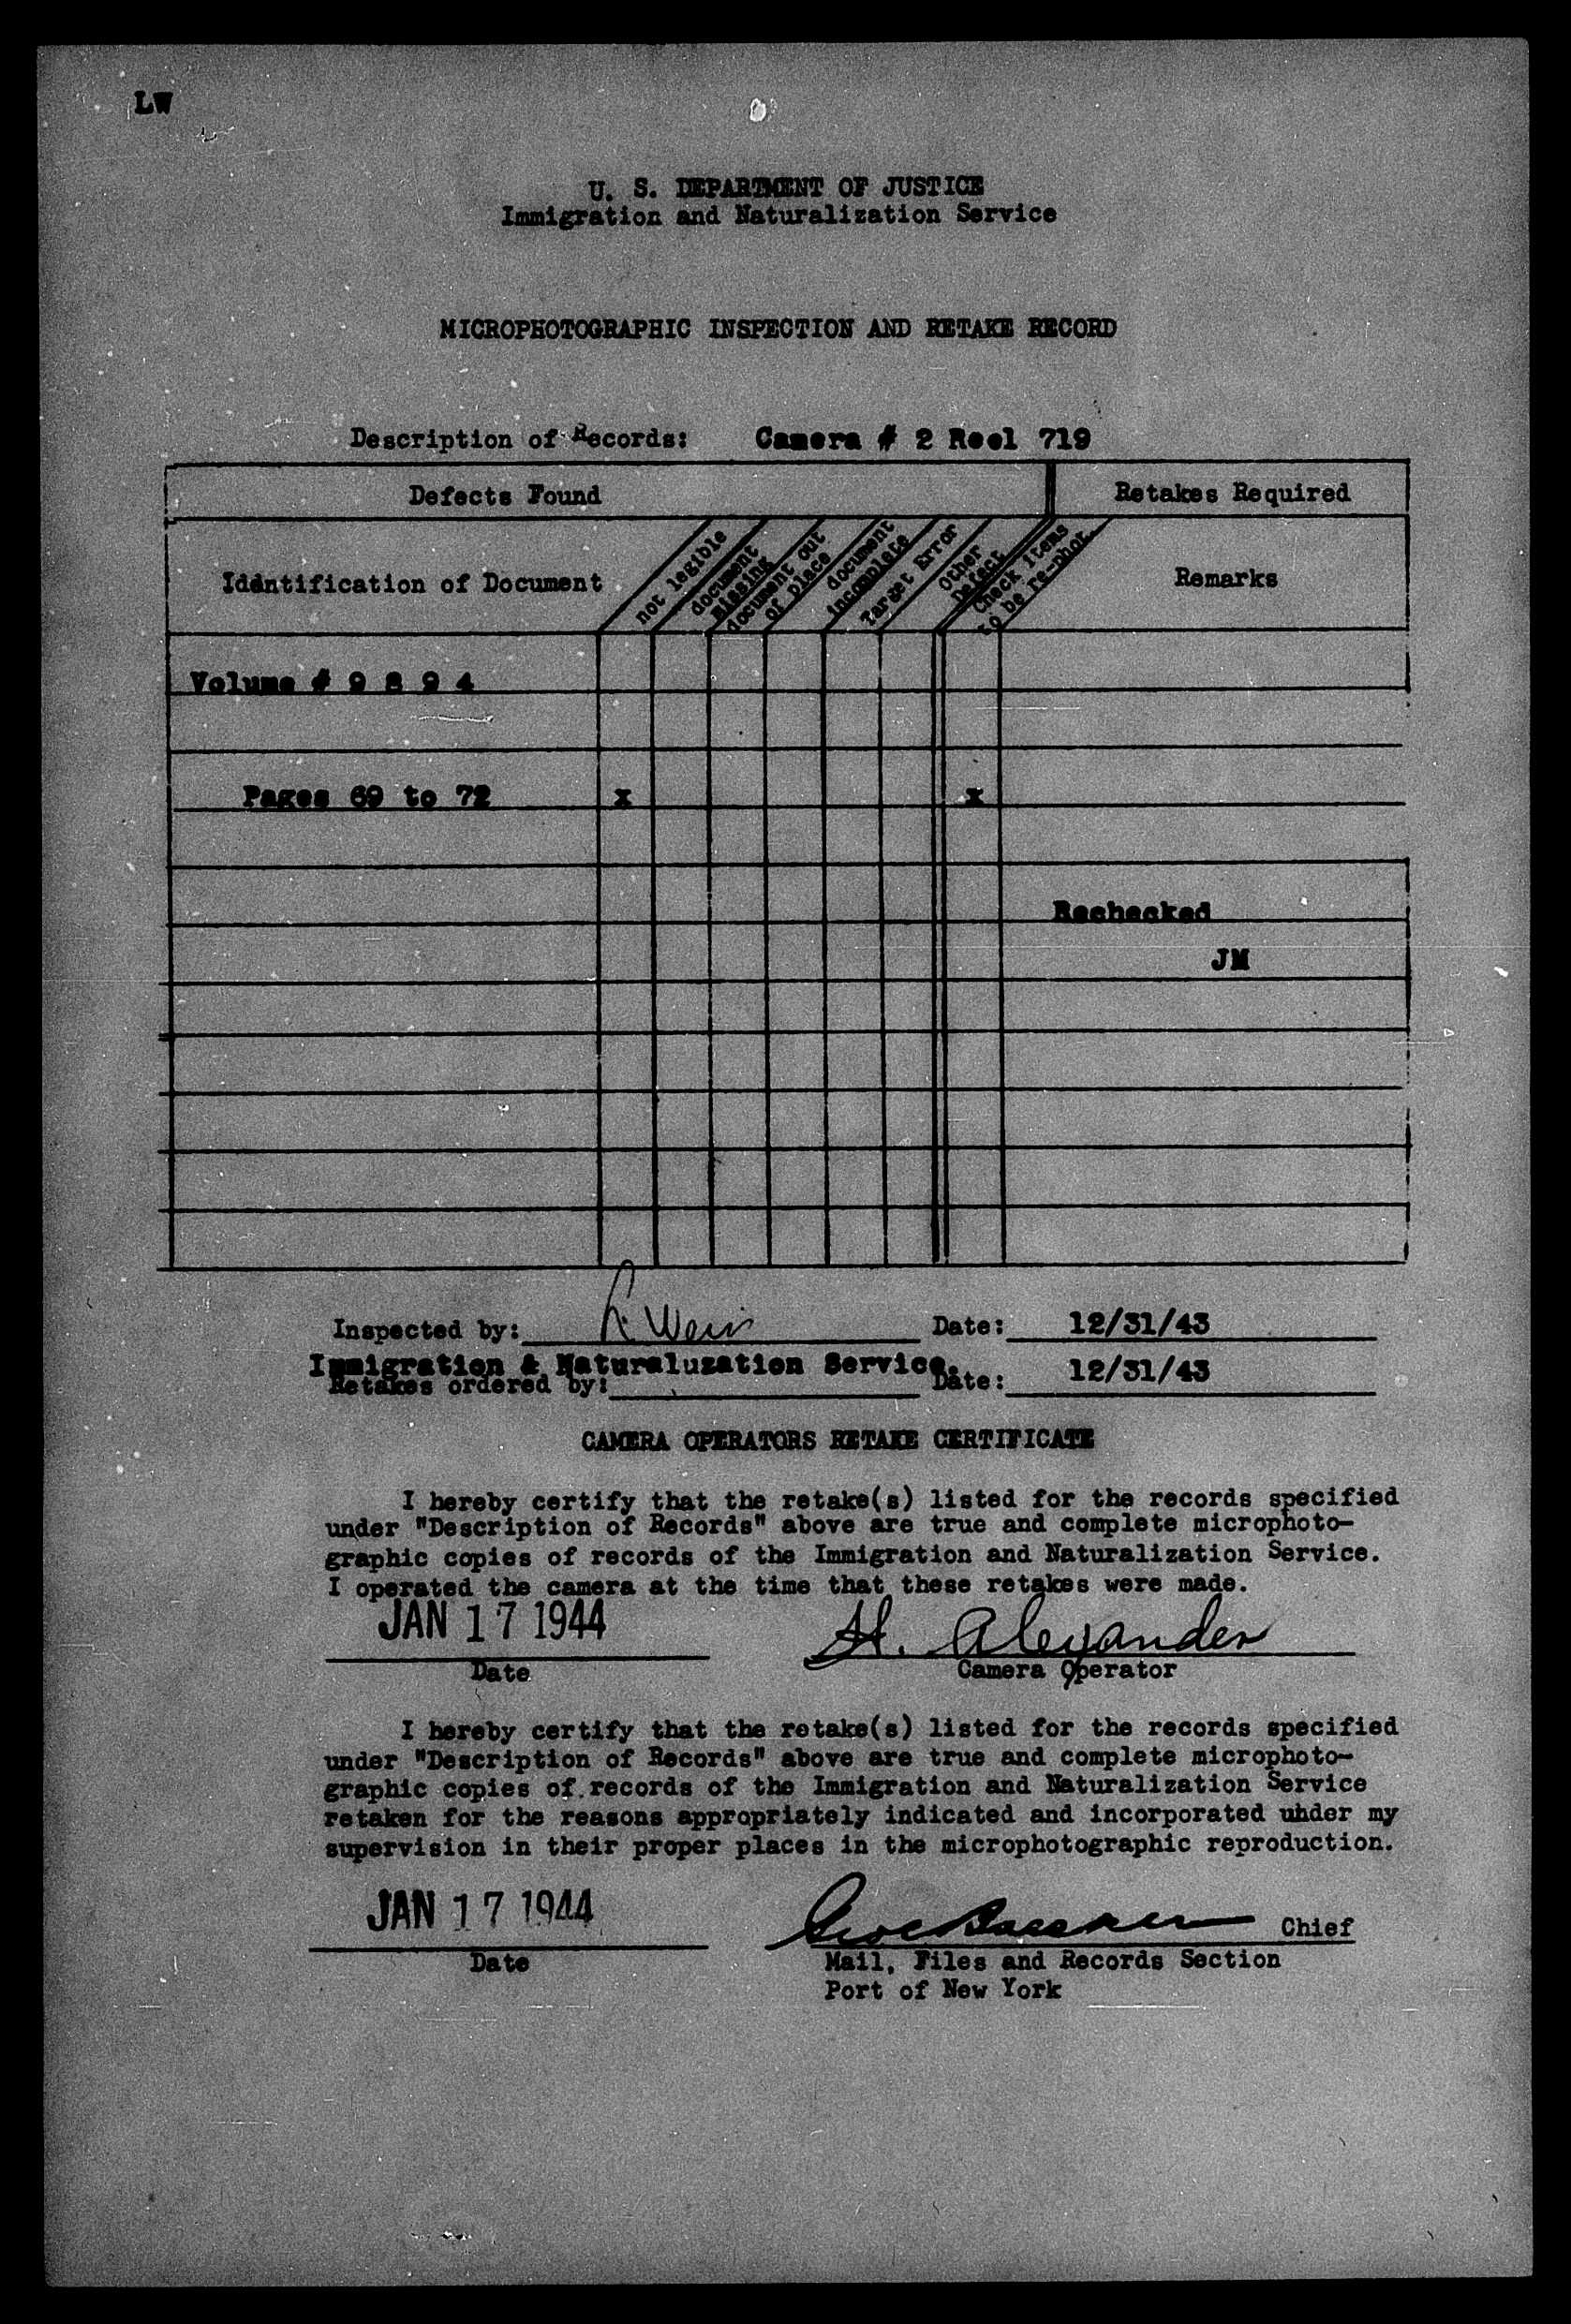 LW
U. S. DEPARTMENT OF JUSTICE
Immigration and Naturalization Service
MICROPHOTOGRAPHIC INSPECTION AND RETAKE RECORD
Description of Records: Camera # 2 Reel 719
Defects Found
Retakes Required
Identification of Document
not legible
document
missing
document out
of place
document
incomplete
Target Error
Other
Defect
Check items
to be re-phot.
Remarks
Volume # 9 8 9 4
Pages 69 to 72 x x
Rechecked
JM
Inspected by: L. Weir Date: 12/31/43
Immigration & Naturaluzation Service.
Retakes ordered by: Date: 12/31/43
CAMERA OPERATORS RETAKE CERTIFICATE
I hereby certify that the retake(s) listed for the records specified
under "Description of Records" above are true and complete microphoto-
graphic copies of records of the Immigration and Naturalization Service.
I operated the camera at the time that these retakes were made.
JAN 17 1944 H. Alexander
Date Camera Operator
I hereby certify that the retake(s) listed for the records specified
under "Description of Records" above are true and complete microphoto-
graphic copies of records of the Immigration and Naturalization Service
retaken for the reasons appropriately indicated and incorporated under my
supervision in their proper places in the microphotographic reproduction.
JAN 17 1944 Chief
Date Mail, Files and Records Section
Port of New York